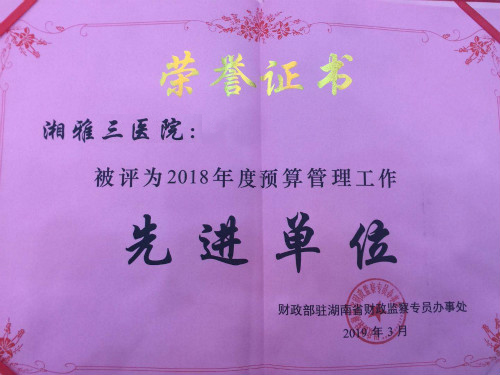 荣誉证书
湘雅三医院：
被评为2018年度预算管理工作
先进单位
财政部驻湖南省财政监察专员办事处
2019年3月